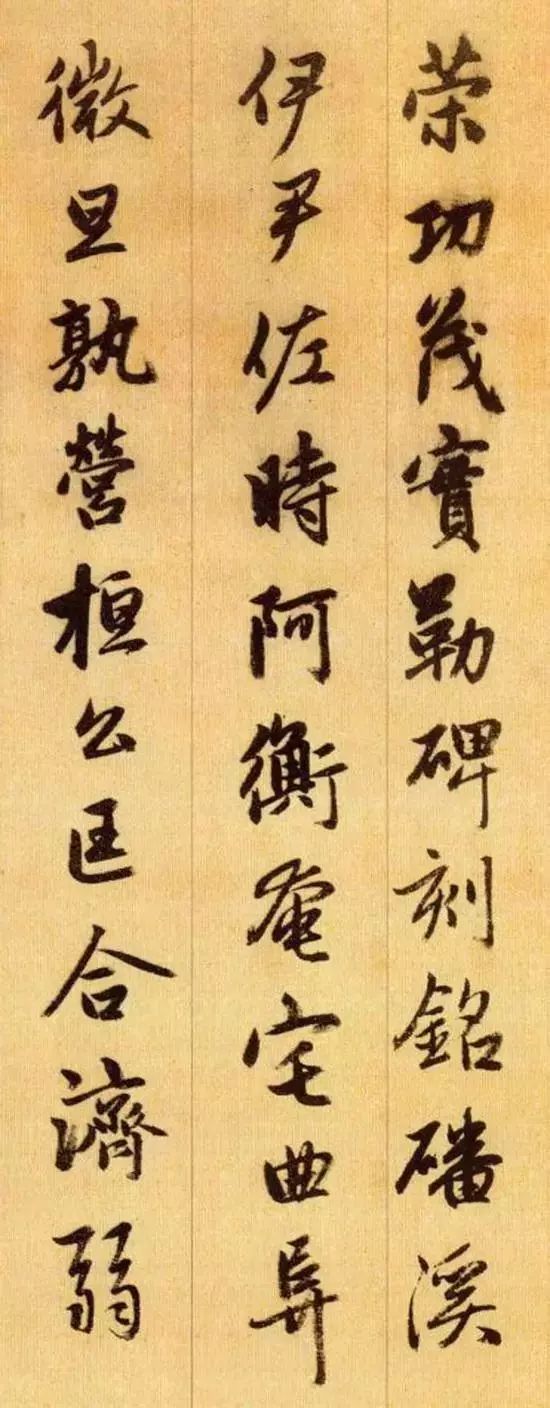 策功茂實勒碑刻銘磻溪
伊尹佐時阿衡奄宅曲阜
微旦孰營桓公匡合濟弱